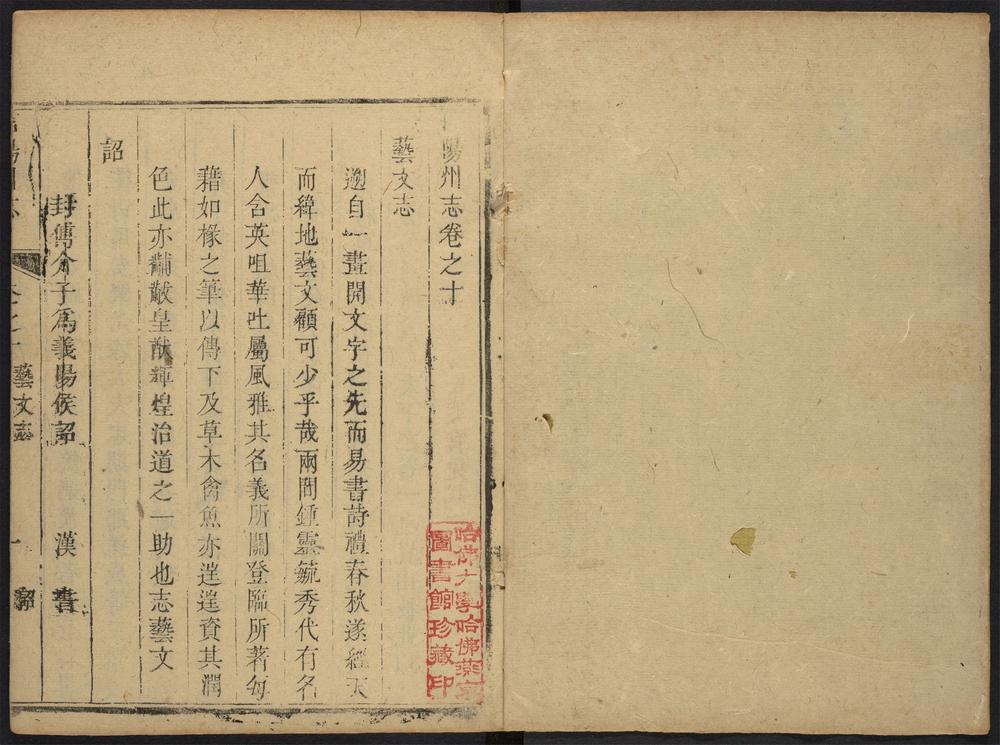 陽州志卷之十
藝文志
遡自一畫開文字之先而易書詩禮春秋遂經天
而緯地藝文顧可少乎哉兩間鍾靈毓秀代有名
人含英咀華吐屬風雅其名義所關登臨所著每
藉如椽之筆以傳下及草木禽魚亦逬逬資其潤
色此亦黼黻皇猷輝煌治道之一助也志藝文
詔
封傅介子為義陽侯詔 漢書
陽州志 卷之十 藝文志 一
哈佛大學哈佛燕京
圖書館珍藏印